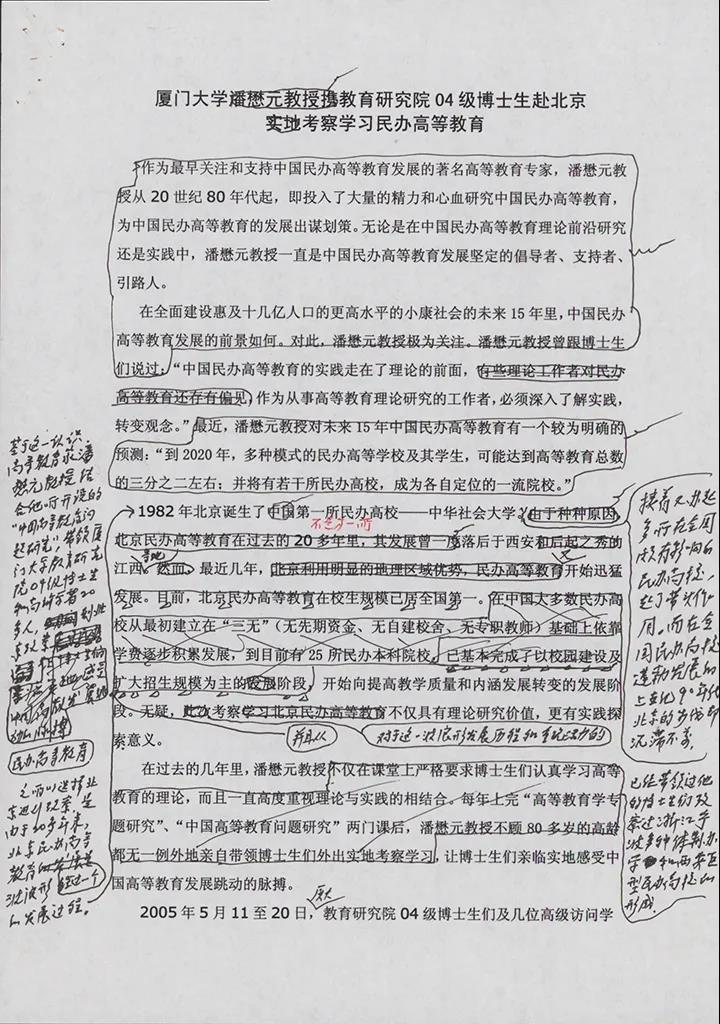 厦门大学潘懋元教授携教育研究院 04 级博士生赴北京
实地考察学习民办高等教育
作为最早关注和支持中国民办高等教育发展的著名高等教育专家，潘懋元教
授从 20 世纪 80 年代起，即投入了大量的精力和心血研究中国民办高等教育，
为中国民办高等教育的发展出谋划策。无论是在中国民办高等教育理论前沿研究
还是实践中，潘懋元教授一直是中国民办高等教育发展坚定的倡导者、支持者、
引路人。
在全面建设惠及十几亿人口的更高水平的小康社会的未来 15 年里，中国民办
高等教育发展的前景如何。对此，潘懋元教授极为关注。潘懋元教授曾跟博士生
们说过：“中国民办高等教育的实践走在了理论的前面，有些理论工作者对民办
高等教育还存有偏见，作为从事高等教育理论研究的工作者，必须深入了解实践，
转变观念。”最近，潘懋元教授对未来 15 年中国民办高等教育有一个较为明确的
预测：“到 2020 年，多种模式的民办高等学校及其学生，可能达到高等教育总数
的三分之二左右；并将有若干所民办高校，成为各自定位的一流院校。”
1982 年北京诞生了中国第一所民办高校——中华社会大学。由于种种原因，
不是第一所
北京民办高等教育在过去的 20 多年里，其发展曾一度落后于西安和后起之秀的
等地
江西。然而，最近几年，北京利用明显的地理区域优势，民办高等教育开始迅猛
又
发展。目前，北京民办高等教育在校生规模已居全国第一。在中国大多数民办高
校从最初建立在“三无”（无先期资金、无自建校舍，无专职教师）基础上依靠
学费逐步积累发展，到目前有 25 所民办本科院校，已基本完成了以校园建设及
扩大招生规模为主的阶段，开始向提高教学质量和内涵发展转变的发展阶
段。无疑，此次考察学习北京民办高等教育不仅具有理论研究价值，更有实践探
索意义。
并且从
对于这一波浪形发展历程和
在过去的几年里，潘懋元教授不仅在课堂上严格要求博士生们认真学习高等
教育的理论，而且一直高度重视理论与实践的相结合。每年上完“高等教育学专
题研究”、“中国高等教育问题研究”两门课后，潘懋元教授不顾 80 多岁的高龄
都无一例外地亲自带领博士生们外出实地考察学习，让博士生们亲临实地感受中
国高等教育发展跳动的脉搏。
2005 年 5 月 11 至 20 日，教育研究院 04 级博士生们及几位高级访问学
厦大
基于这一认识
高等教育家潘
懋元教授结
合他所开设的
“中国高等教育问
题研究”，带领厦
门大学教育研究
院04级博士生
和高访学者20
多人，到北京
民办高等教育
之所以选择北
京进行改革，是
由于20多年来，
北京民办高等
教育
波浪形经过一个
的发展过程。
接着又办起
多所在全国
颇有影响的
民办高校，
起了带头作
用。而在全
国民办高校
蓬勃发展的
上世纪90年代
北京的
沉滞不前。
已经带领过他
的博士生们考
察过浙江宁
波多种体制办
学和西安巨
型民办高校的
形成